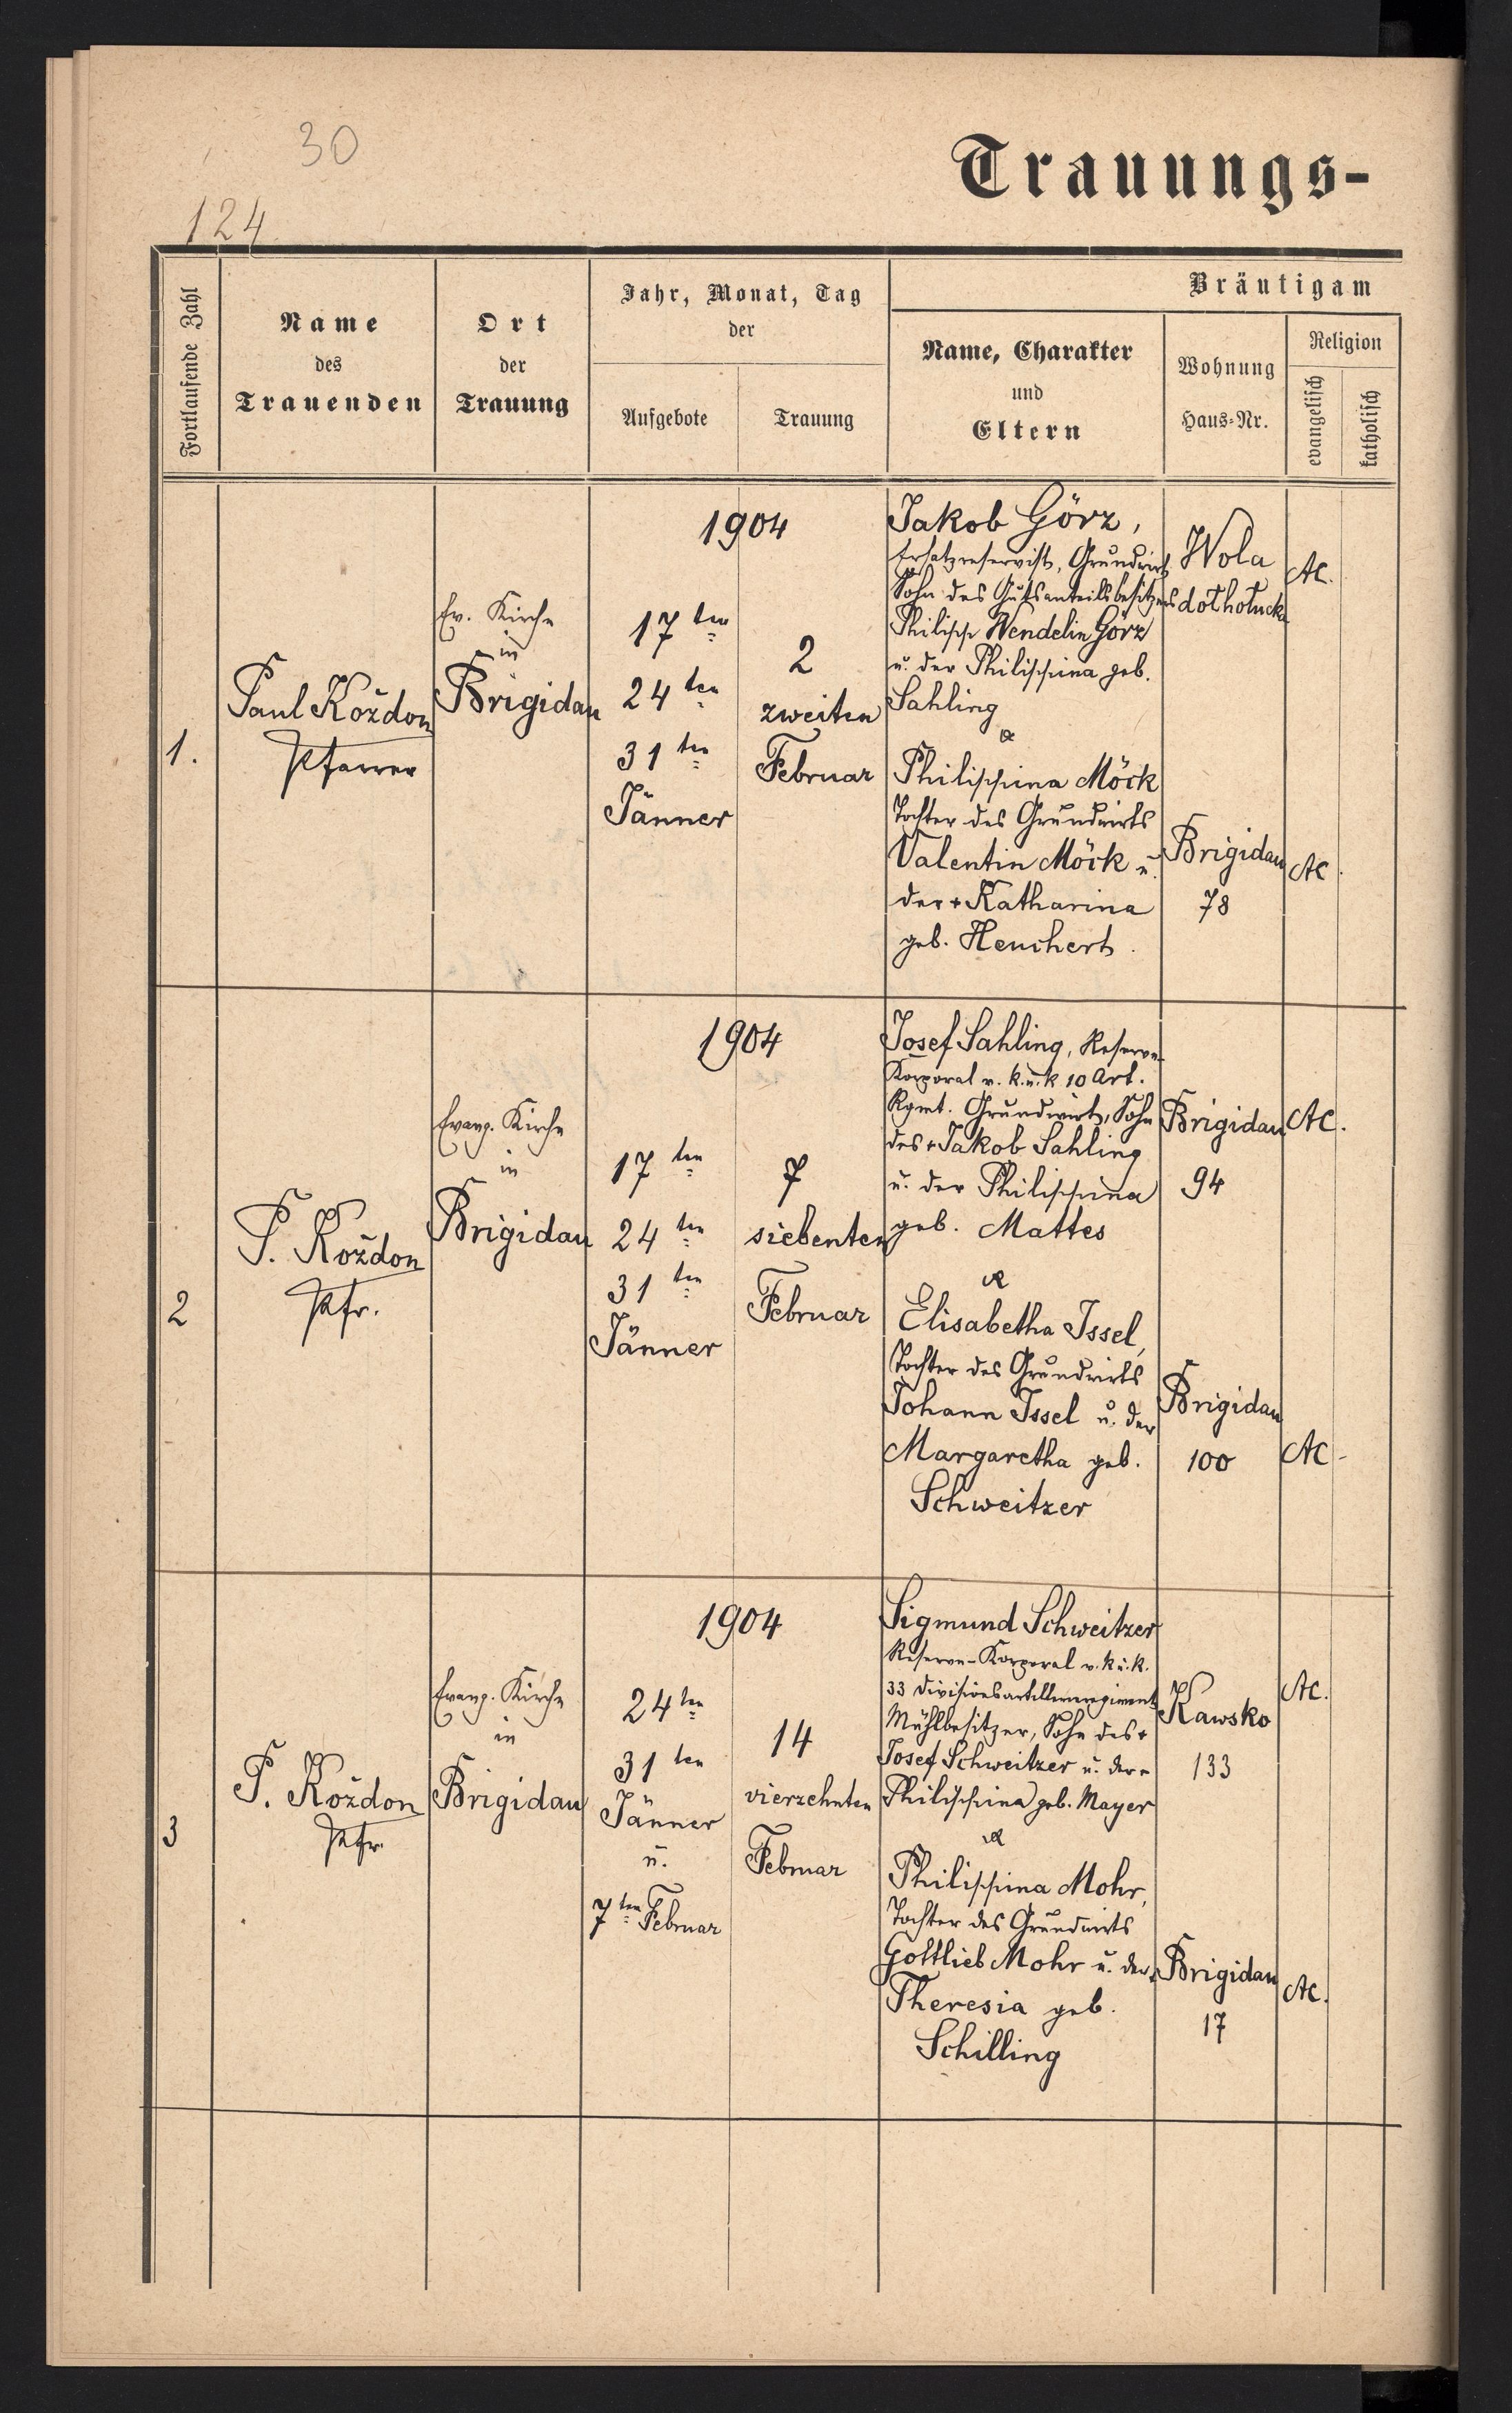 30
124
Trauungs-
Fortlaufende Zahl
Name
des
Trauenden
Ort
der
Trauung
Jahr, Monat, Tag
der
Aufgebote
Trauung
Bräutigam
Name, Charakter
und
Eltern
Wohnung
Haus-Nr.
Religion
evangelisch
katholisch
1.
Paul Kożdon
Pfarrer
Ev. Kirche
in
Brigidau
1904
17ten
24ten
31ten
Jänner
2
zweiten
Februar
Jakob Görz,
Ersatzreservist, Grundwirt
Sohn des Gutsanteilsbesitzers
Philipp Wendelin Görz
u. der Philippina geb.
Sahling
&
Philippina Möck
Tochter des Grundwirts
Valentin Möck u.
der + Katharina
geb. Heuchert.
Wola
dołhołucka
AC.
Brigidau
78
AC.
2
P. Kożdon
Pfr.
Evang. Kirche
in
Brigidau
1904
17ten
24ten
31ten
Jänner
7
siebenten
Februar
Josef Sahling, Reserve-
Korporal v. k. u. k 10 Art.
Rgmt. Grundwirt, Sohn
des + Jakob Sahling
u. der Philippina
geb. Mattes
&
Elisabetha Issel,
Tochter des Grundwirts
Johann Issel u. der
Margaretha geb.
Schweitzer
Brigidau
94
AC.
Brigidau
100
AC-
3
P. Kożdon
Pfr.
Evang. Kirche
in
Brigidau
1904
24ten
31ten
Jänner
u.
7ten Februar
14
vierzehnten
Februar
Sigmund Schweitzer
Reserve-Korporal v. k u. k.
33 Divisionsartillerieregiment
Mühlbesitzer, Sohn des +
Josef Schweitzer u. der +
Philippina geb. Mayer
&
Philippina Mohr,
Tochter des Grundwirts
Gottlieb Mohr u. der +
Theresia geb.
Schilling
Kawsko
133
AC.
Brigidau
17
AC.